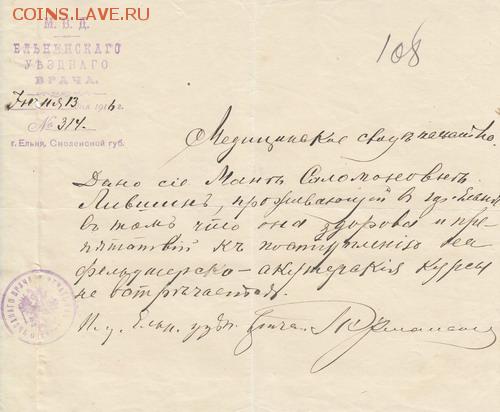 COINS.LAVE.RU
М. В. Д.
ЕЛЬНЕНСКАГО
УѢЗДНАГО
ВРАЧА.
Іюня 13 дня 1916 г.
№ 314.
г. Ельня, Смоленской губ.
108
Медицинское свидѣтельство.
Дано сіе Саломоновнѣ
Лившинъ, проживающей в гор. Ельнѣ
в томъ что она здорова и пре-
пятствій къ поступленію на
фельдшерско-акушерскія курсы
не встрѣчается.
И. д. Ельн. уѣзд. врача